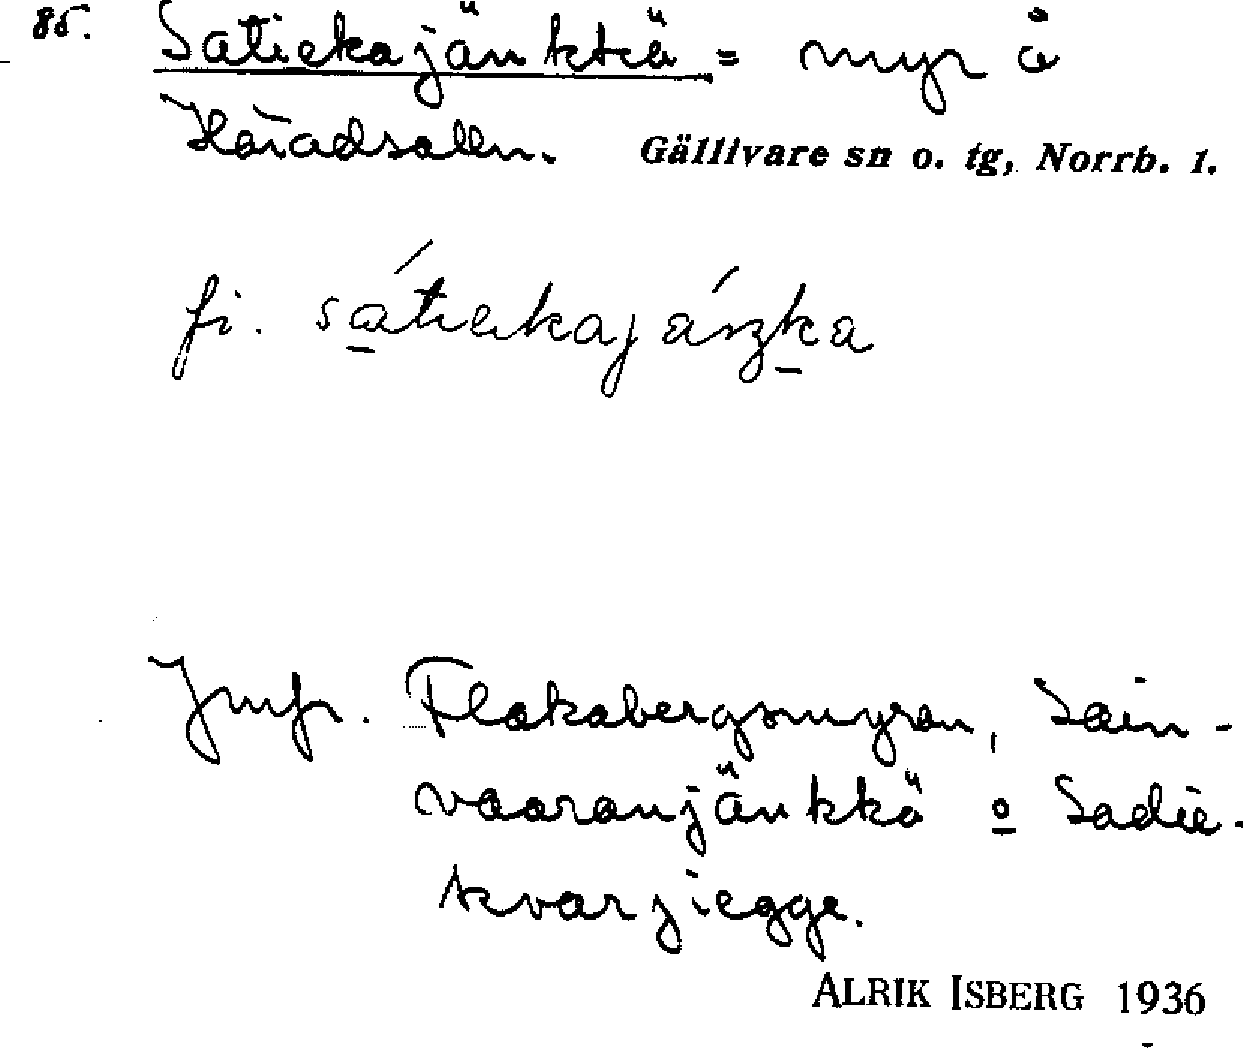 85. Satiekajänkkä = myr å
Häradsallm. Gällivare sn o. tg, Norrb. l.
fi. sátiekajáŋka
Jmfr. Flakabergsmyran, Sain-
vaaranjänkkä o Sadie-
kvarjiegge.
ALRIK ISBERG 1936